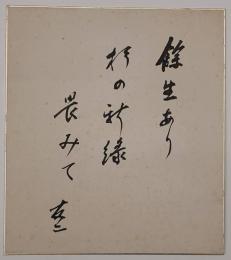 餘生あり
杉の新緑
畏みて